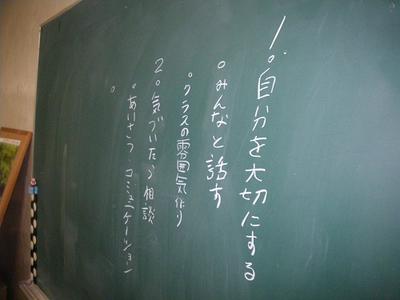 1.。自分を大切にする
。みんなと話す
。クラスの雰囲気作り
2。気づいたら相談
。あいさつ・コミュニケーション
。